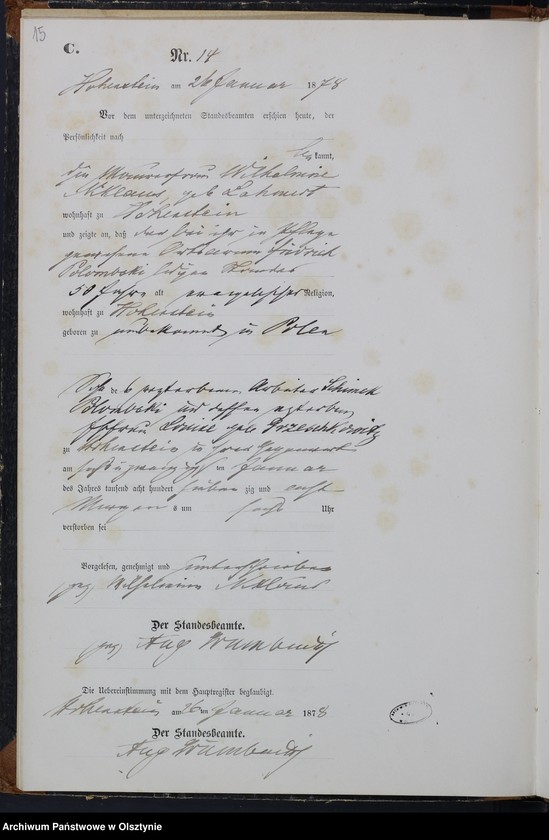 15
C.
Nr. 14
Hohenstein am 26 Januar 1878
Vor dem unterzeichneten Standesbeamten erschien heute, der
Persönlichkeit nach
be kannt,
die Maurerfrau Wilhelmine
geb
wohnhaft zu Hohenstein
und zeigte an, daß der bei ihr in Pflege
gewesene Ortsarme Friedrich
ledigen Standes
50 Jahre alt evangelischer Religion,
wohnhaft zu Hohenstein
geboren zu unbekannt in Polen
Sohn des verstorbenen Arbeiter
und dessen verstorbenen
Ehefrau Louise geb
zu Hohenstein in ihrer Gegenwart
am sechs u zwanzigsten Januar
des Jahres tausend acht hundert sieben zig und acht
Morgens um sechs Uhr
verstorben sei
Vorgelesen, genehmigt und unterschrieben
gez Wilhelmine
Der Standesbeamte.
gez Aug
Die Uebereinstimmung mit dem Hauptregister beglaubigt.
Hohenstein am 26 ten Januar 1878
Der Standesbeamte.
Aug
Archiwum Państwowe w Olsztynie